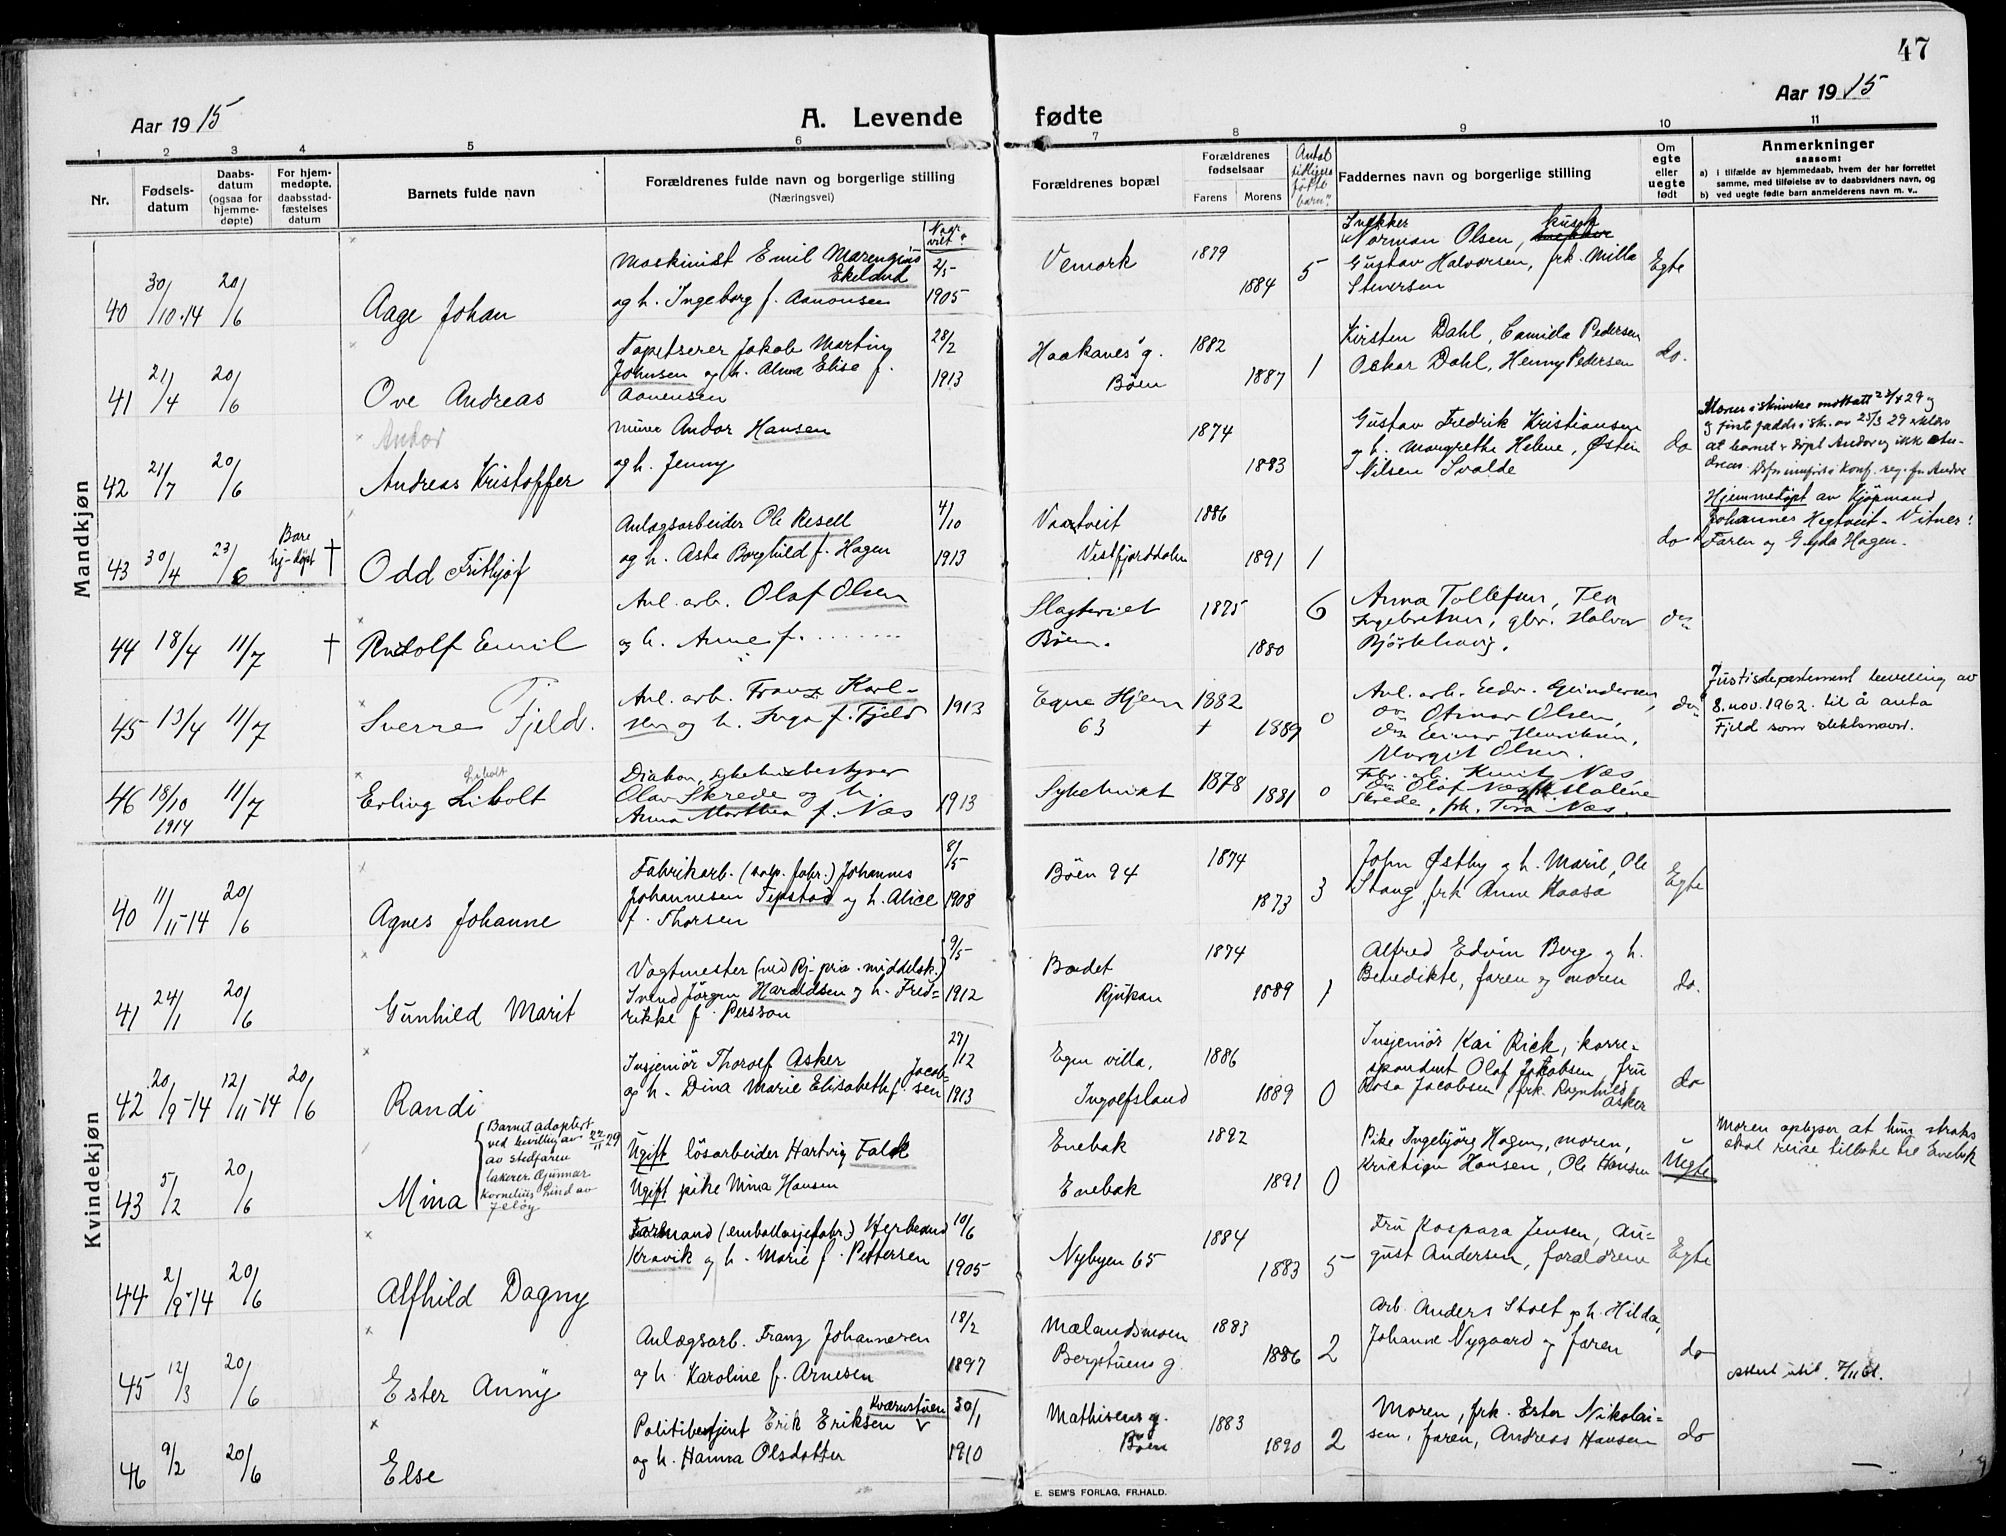 47
Aar 1915
A. Levende fødte
Aar 1915
1 2 3 4 5 6 7 8 9 10 11
Nr.
Fødsels-
datum
Daabs-
datum
(ogsaa for
hjemme-
døpte)
For hjem-
medøpte,
daabsstad-
fæstelses
datum
Barnets fulde navn
Forældrenes fulde navn og borgerlige stilling
(Næringsvei)
Forældrenes bopæl
Forældrenes
fødselsaar
Farens Morens
Antal
tidligere
fødte
barn
Faddernes navn og borgerlige stilling
Om
egte
eller
uegte
født
Anmerkninger
saasom:
a) i tilfælde av hjemmedaab, hvem der har forrettet
samme, med tilføielse av to daabsvidners navn, og
b) ved uegte fødte barn anmelderens navn m. v..
Mandkjøn
40 30/10-14 20/6
Aage Johan
Maskinist Emil Marengius
Ekelund
og h. Ingeborg f. Aanonsen
2/5
1905
Vemork
1879
1884
5
Snekker
Norman Olsen, kusk
Gustav Halvorsen, frk. Milla
Sieversen
Egte
41 21/4 20/6
Ove Andreas
Tapetserer Jakob Martin
Johnsen og h. Alma Elise f.
Aanensen
28/2
1913
Haakanes' g.
Böen
1882
1887
1
Kirsten Dahl, Camilla Pedersen
Oskar Dahl, Henny Pedersen
do.
42 21/7 20/6
Andor
Andreas Kristoffer
murer Andor Hansen
og h. Jenny
1874
1883
Gustav Fredrik Kristiansen
og h. Margrethe Helene, Østen
Nilsen Svalde
do
at barnet er döpt Andor og ikke An-
dreas.
43 30/4 23/6
Bare
hj-döpt †
Odd Frithjof
Anlægsarbeider Ole Resell
og h. Asta Borghild f. Hagen
4/10
1913
Vaartveit
Vestfjorddalen
1886
1891
1
do
Hjemmedöpt av Kjöpmand
Johannes Hegtveit - Vitner:
Faren og Gyda Hagen.
44 18/4 11/7 †
Rudolf Emil
Anl. arb. Olaf Olsen
og h. Anne f. ........
Slagteriet
Böen.
1875
1880
6
Anna Tollefsen, Tea
Ingebretsen, gbr. Halvor
Bjørkhaug.
do
45 13/4 11/7
Sverre Fjeld.
Anl. arb. Franz Karl-
sen og h. Inga f. Fjeld
1913
Egne Hjem
63
1882
+
1889
0
Anl. arb. Edv. Gundersen,
do Otmar Olsen,
do Einar Henriksen,
Margit Olsen.
do
Justisdepartement bevilling av
8. nov. 1962. til å anta
Fjeld som slektsnavn.
46 18/10 1914 11/7
Libolt
Erling Libolt
Diakon, sykehusbestyrer
Olav Skrede og h.
Anna Marthea f. Næs
1913
Sykehuset
1878
1881
0
Fabr. arb. Knut Næs,
do Olaf Næs, frk. Malene
Skrede, frk. Tora Næs.
Kvindekjøn
40 11/11-14 20/6
Agnes Johanne
Fabrikarb. (salp. fabr.) Johannes
Johannesen Tepstad og h. Alice
f. Thorsen
8/5
1908
Böen 94
1874
1873
3
John Østby og h. Marie, Ole
Stang, frk Anne Haasa
Egte
41 24/1 20/6
Gunhild Marit
Vagtmester (ved Rj. priv. middelsk.)
Svend Jörgen Haraldsen og h. Fred-
rikke f. Persson
9/5
1912
Badet
Rjukan
1874
1889
1
Alfred Edvin Berg og h.
Benedikte, faren og moren
do.
42 20/9-14 12/11-14 20/6
Randi
Insjeniör Thoralf Asker
og h. Dina Marie Elisabeth f. Jacob-
sen
27/12
1913
Egen villa,
Ingolfsland
1886
1889
0
Insjeniör Kai Rick, korre-
spondent Olaf Jakobsen, fru
Rosa Jacobsen, frk. Ragnhild
Asker
do
43 5/2 20/6
Mina
Barnet adoptert
ved bevilling av 22/11 29
av stedfaren
lakerer Gunnar
Kornelius Lind av
Jeløy
Ugift lösarbeider Hartvig Falck
Ugift pike Mina Hansen
Enebak
Enebak
1892
1891
0
Pike Ingebjörg Hagen, moren,
Kristian Hansen, Ole Hansen
Uegte
Moren oplyser at hun straks
skal reise tilbake til Enebak
44 2/9-14 20/6
Alfhild Dagny
Formand (emballasjefabr.) Herbrand
Kravik og h. Marie f. Pettersen
10/6
1905
Nybyen 65
1884
1883
5
Fru Kaspara Jensen, Au-
gust Andersen, foraldrene
Egte
45 12/3 20/6
Ester Anny
Anlægsarb. Franz Johannesen
og h. Karoline f. Arnesen
18/2
1897
Mælandsmoen
Bergstuens g.
1883
1886
2
Arb. Anders Stolt og h. Hilda,
Johanne Nygaard og faren
do
Attest utst. 7/11 61.
46 9/2 20/6
Else
Politibetjent Erik Eriksen Kværnstuen
og h. Hanna Olsdotter
30/1
1910
Mathisens g.
Böen
1883
1890
2
Moren, frk. Ester Nikolai-
sen, faren, Andreas Hansen
do
E. SEM'S FORLAG, FR.HALD.